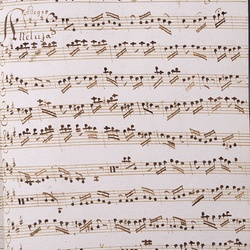 Allegro
Alleluja